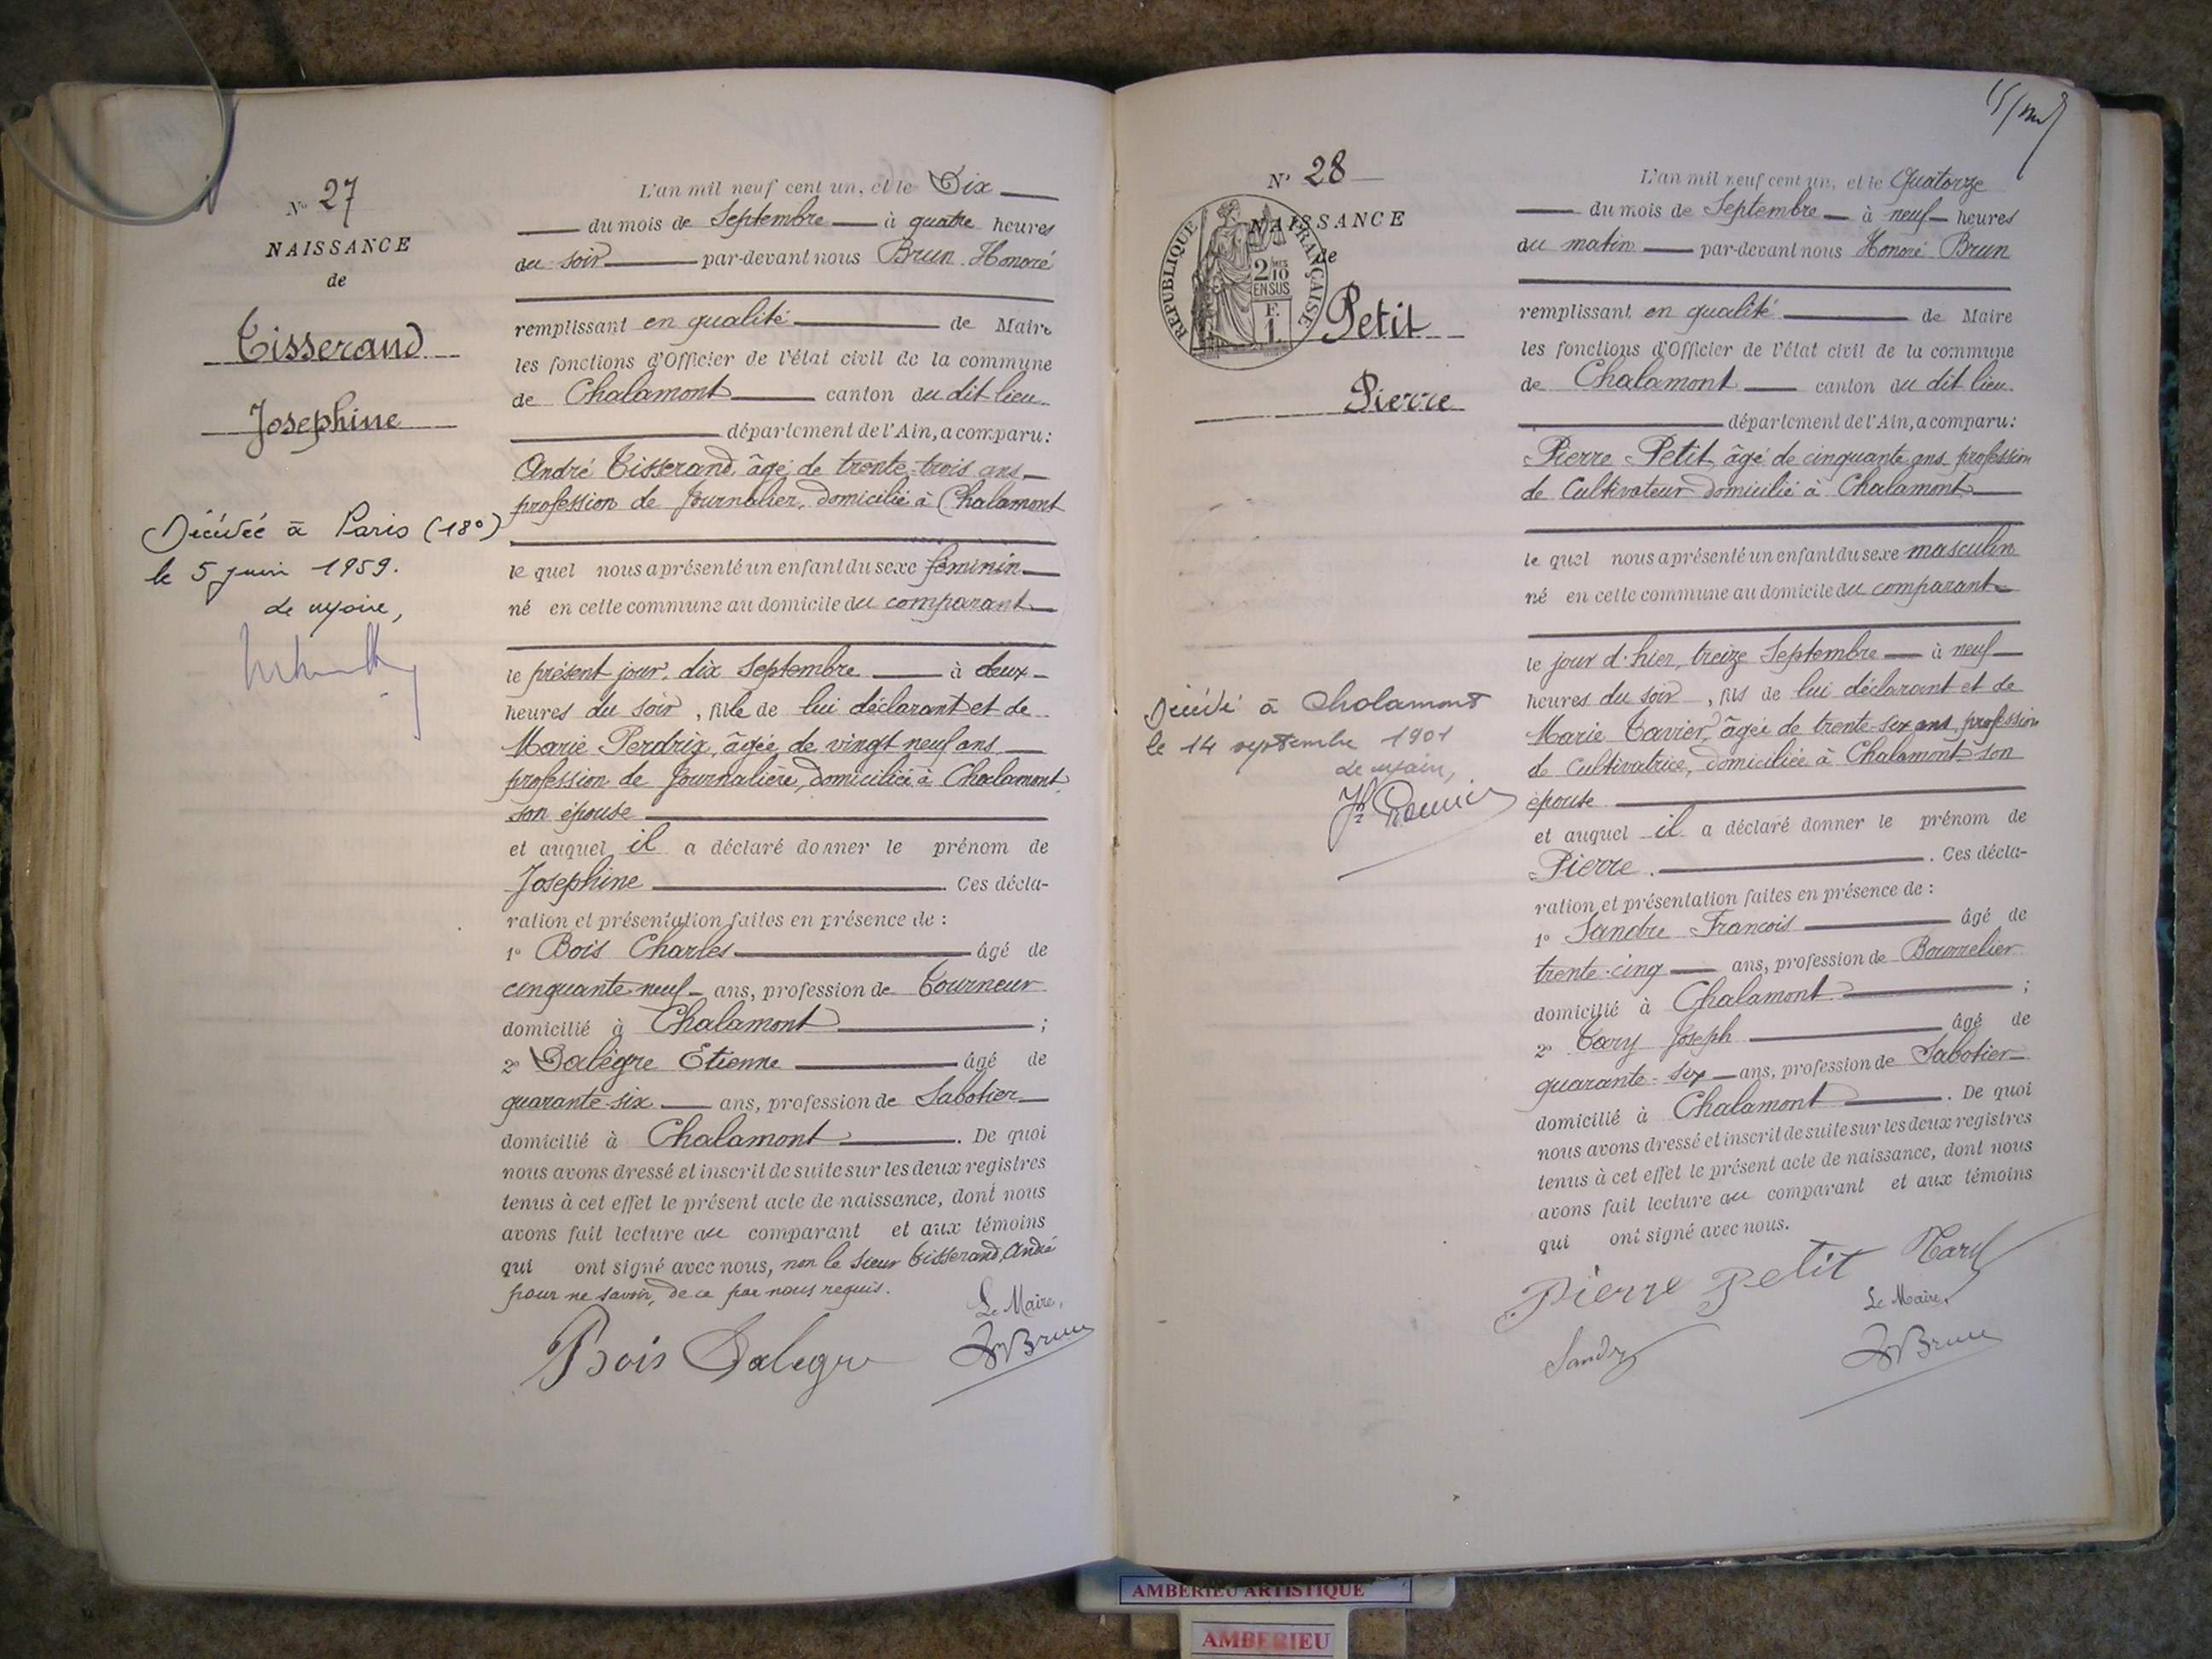 N° 27
NAISSANCE
de
Tisserand
Josephine
Décédée à Paris (18e)
le 5 juin 1959.
Le Maire,
L'an mil neuf cent un, et le Dix
du mois de Septembre à quatre heures
du soir par-devant nous Brun Honoré
remplissant en qualité de Maire
les fonctions d'Officier de l'état civil de la commune
de Chalamont canton du dit lieu
département de l'Ain, a comparu:
André Tisserand, âgé de trente-trois ans
profession de Journalier, domicilié à Chalamont
le quel nous a présenté un enfant du sexe féminin
né en cette commune au domicile du comparant
le présent jour, dix Septembre à deux
heures du soir, fille de lui déclarant et de
Marie Perdrix, âgée de vingt neuf ans
profession de Journalière, domiciliée à Chalamont,
son épouse
et auquel il a déclaré donner le prénom de
Josephine. Ces décla-
ration et présentation faites en présence de :
1° Bois Charles âgé de
cinquante neuf ans, profession de Tourneur
domicilié à Chalamont ;
2° Dalègre Etienne âgé de
quarante-six ans, profession de Sabotier
domicilié à Chalamont. De quoi
nous avons dressé et inscrit de suite sur les deux registres
tenus à cet effet le présent acte de naissance, dont nous
avons fait lecture au comparant et aux témoins
qui ont signé avec nous, non le sieur Tisserand, André
pour ne savoir, de ce par nous requis.
Le Maire,
Bois Dalegre HBrun
N° 28
NAISSANCE
de
REPUBLIQUE FRANÇAISE
2/10 MES
EN SUS
F.
1.
Petit
Pierre
Décédé à Chalamont
le 14 septembre 1901
Le Maire,
L'an mil neuf cent un, et le Quatorze
du mois de Septembre à neuf heures
du matin par-devant nous Honoré Brun
remplissant en qualité de Maire
les fonctions d'Officier de l'état civil de la commune
de Chalamont canton du dit lieu
département de l'Ain, a comparu:
Pierre Petit, âgé de cinquante ans profession
de Cultivateur domicilié à Chalamont
le quel nous a présenté un enfant du sexe masculin
né en cette commune au domicile du comparant
le jour d'hier, treize Septembre à neuf
heures du soir, fils de lui déclarant et de
Marie Tavier, âgée de trente-six ans, profession
de Cultivatrice, domiciliée à Chalamont son
épouse
et auquel il a déclaré donner le prénom de
Pierre. Ces décla-
ration et présentation faites en présence de :
1° Sandre Francois âgé de
trente-cinq ans, profession de Bourrelier
domicilié à Chalamont ;
2° Tary Joseph âgé de
quarante-six ans, profession de Sabotier
domicilié à Chalamont. De quoi
nous avons dressé et inscrit de suite sur les deux registres
tenus à cet effet le présent acte de naissance, dont nous
avons fait lecture au comparant et aux témoins
qui ont signé avec nous.
Pierre Petit Tary
Le Maire,
Sandre HBrun
AMBERIEU ARTISTIQUE
AMBERIEU